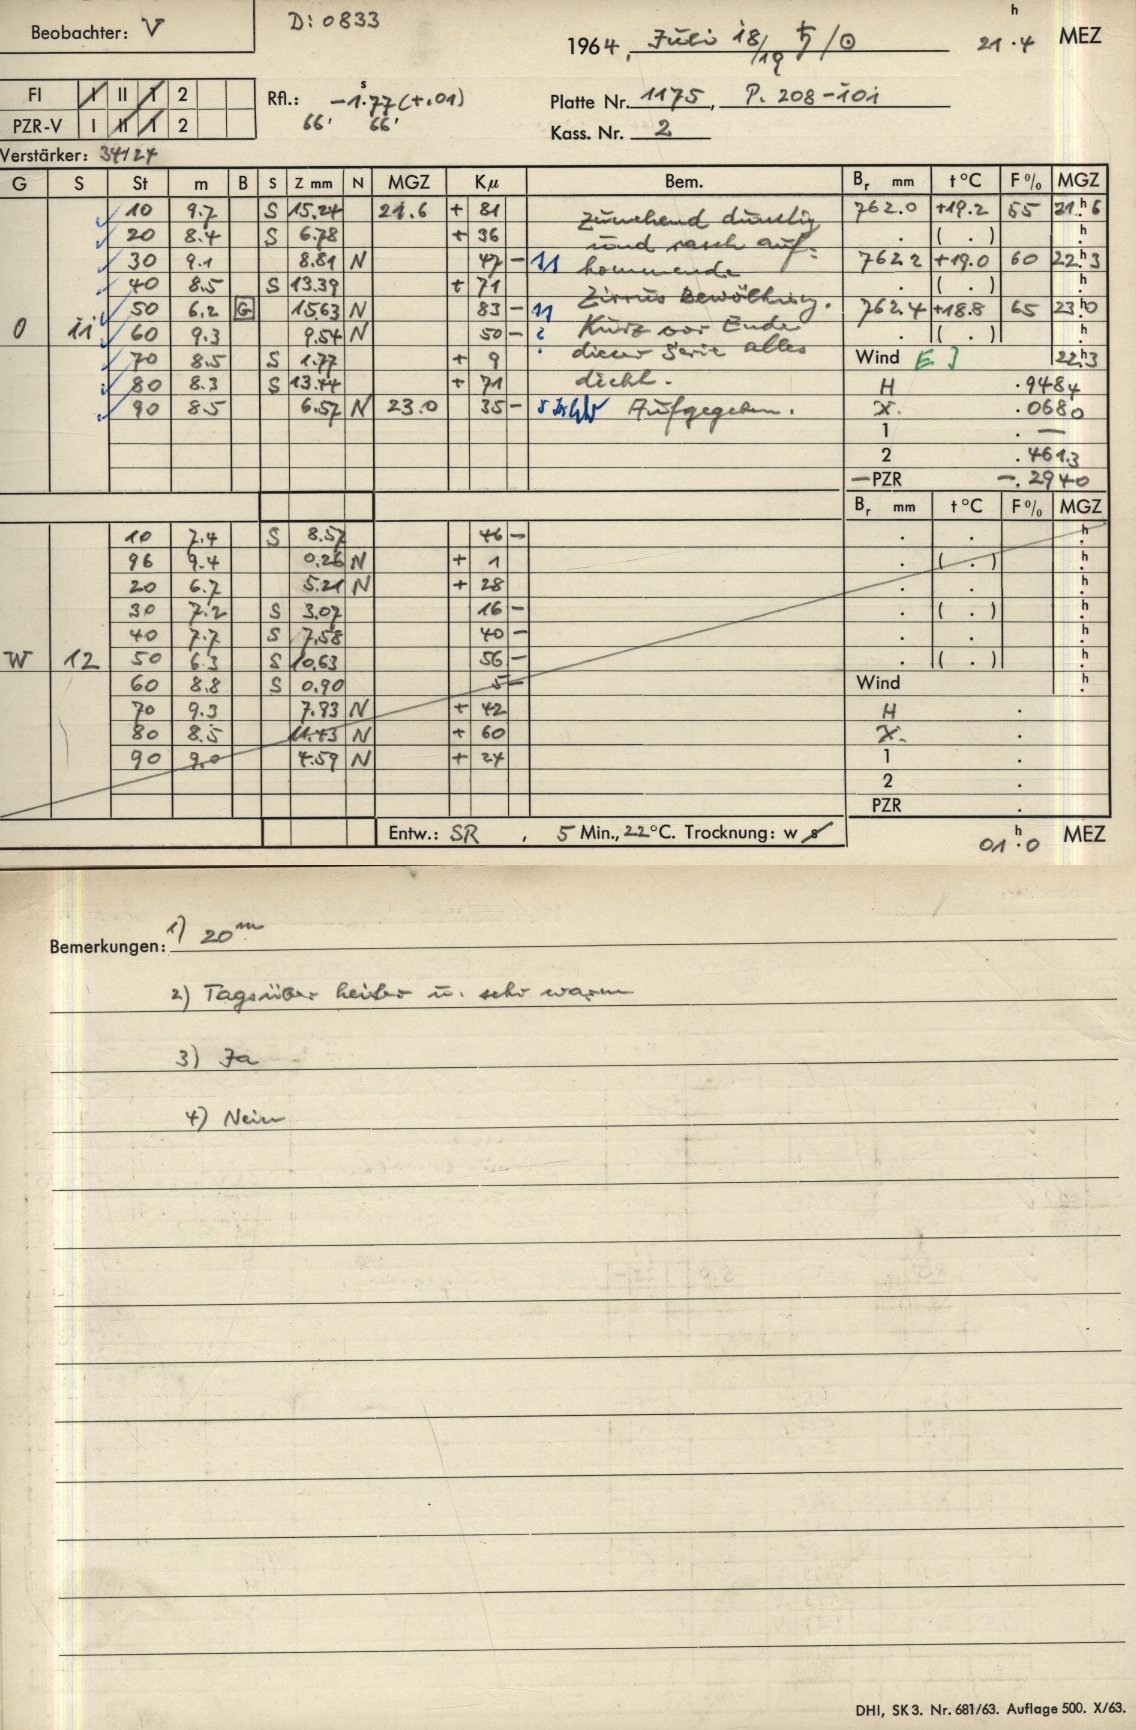 Beobachter: V
D: 0833
1964, Juli 18/19 ♄/☉ 21ʰ.4 MEZ
FI I II 1 2
PZR-V I II 1 2
Rfl.: -1ˢ.77 (+.01)
66' 66'
Platte Nr. 1175, P. 208-101
Kass. Nr. 2
Verstärker: 34124
G S St m B S Z mm N MGZ Kμ Bem. Br mm t °C F % MGZ
10 9.7 S 15.24 21.6 + 81 Zunehend dunstig 762.0 +19.2 55 21ʰ.6
20 8.4 S 6.78 + 36 und rasch auf- . ( . ) ʰ.
30 9.1 8.81 N 47 - 11 kommende 762.2 +19.0 60 22ʰ.3
40 8.5 S 13.39 + 71 Zirrus bewölkung. . ( . ) ʰ.
50 6.2 G 15.63 N 83 - 11 Kurz vor Ende 762.4 +18.8 65 23ʰ.0
0 11 60 9.3 9.54 N 50 - dieser Serie alles . ( . ) ʰ.
70 8.5 S 1.77 + 9 dicht. Wind E 22ʰ.3
80 8.3 S 13.44 + 71 H .9484
90 8.5 6.57 N 23.0 35 - Aufgegeben. X. .0680
1 . —
2 .4613
-PZR -.2940
Br mm t °C F % MGZ
10 7.4 S 8.57 46 - . . ʰ.
96 9.4 0.26 N + 1 . ( . ) ʰ.
20 6.7 5.21 N + 28 . . ʰ.
30 7.2 S 3.07 16 - . ( . ) ʰ.
40 7.7 S 7.58 40 - . . ʰ.
W 12 50 6.3 S 10.63 56 - . ( . ) ʰ.
60 8.8 S 0.90 5 - Wind ʰ.
70 9.3 7.93 N + 42 H .
80 8.5 11.43 N + 60 X. .
90 9.0 4.59 N + 24 1 .
2 .
PZR .
Entw.: SR , 5 Min., 22 °C. Trocknung: w s
01ʰ.0 MEZ
Bemerkungen: 1) 20ᵐ
2) Tagsüber heiter u. sehr warm
3) Ja
4) Nein
DHI, SK 3. Nr. 681/63. Auflage 500. X/63.